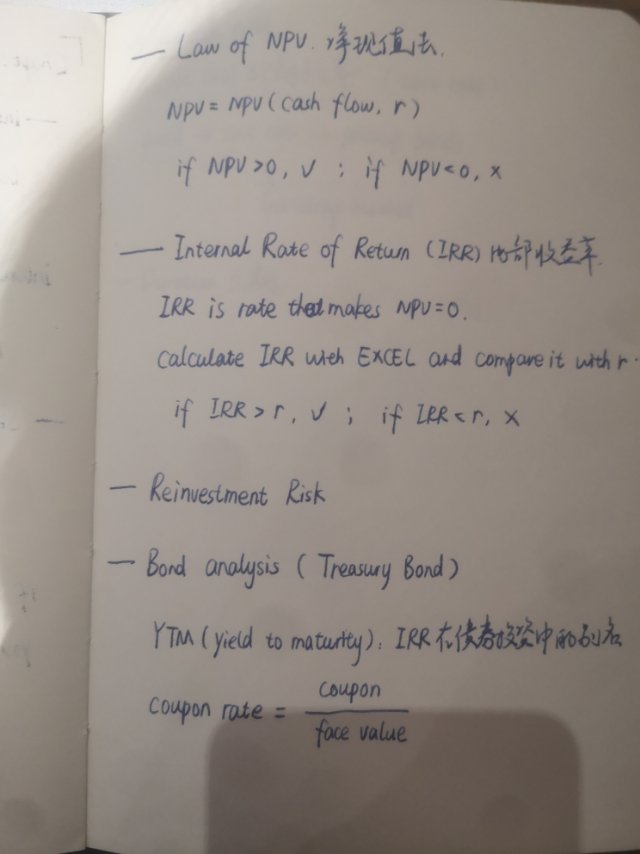 — Law of NPV. 净现值法.
NPV = NPV (cash flow, r)
if NPV>0, √ ; if NPV<0, ×
— Internal Rate of Return (IRR) 内部收益率.
IRR is rate that makes NPV=0.
Calculate IRR with EXCEL and compare it with r.
if IRR > r, √ ; if IRR < r, ×
— Reinvestment Risk
— Bond analysis ( Treasury Bond )
YTM (yield to maturity): IRR在债券投资中的别名
Coupon rate = coupon
face value